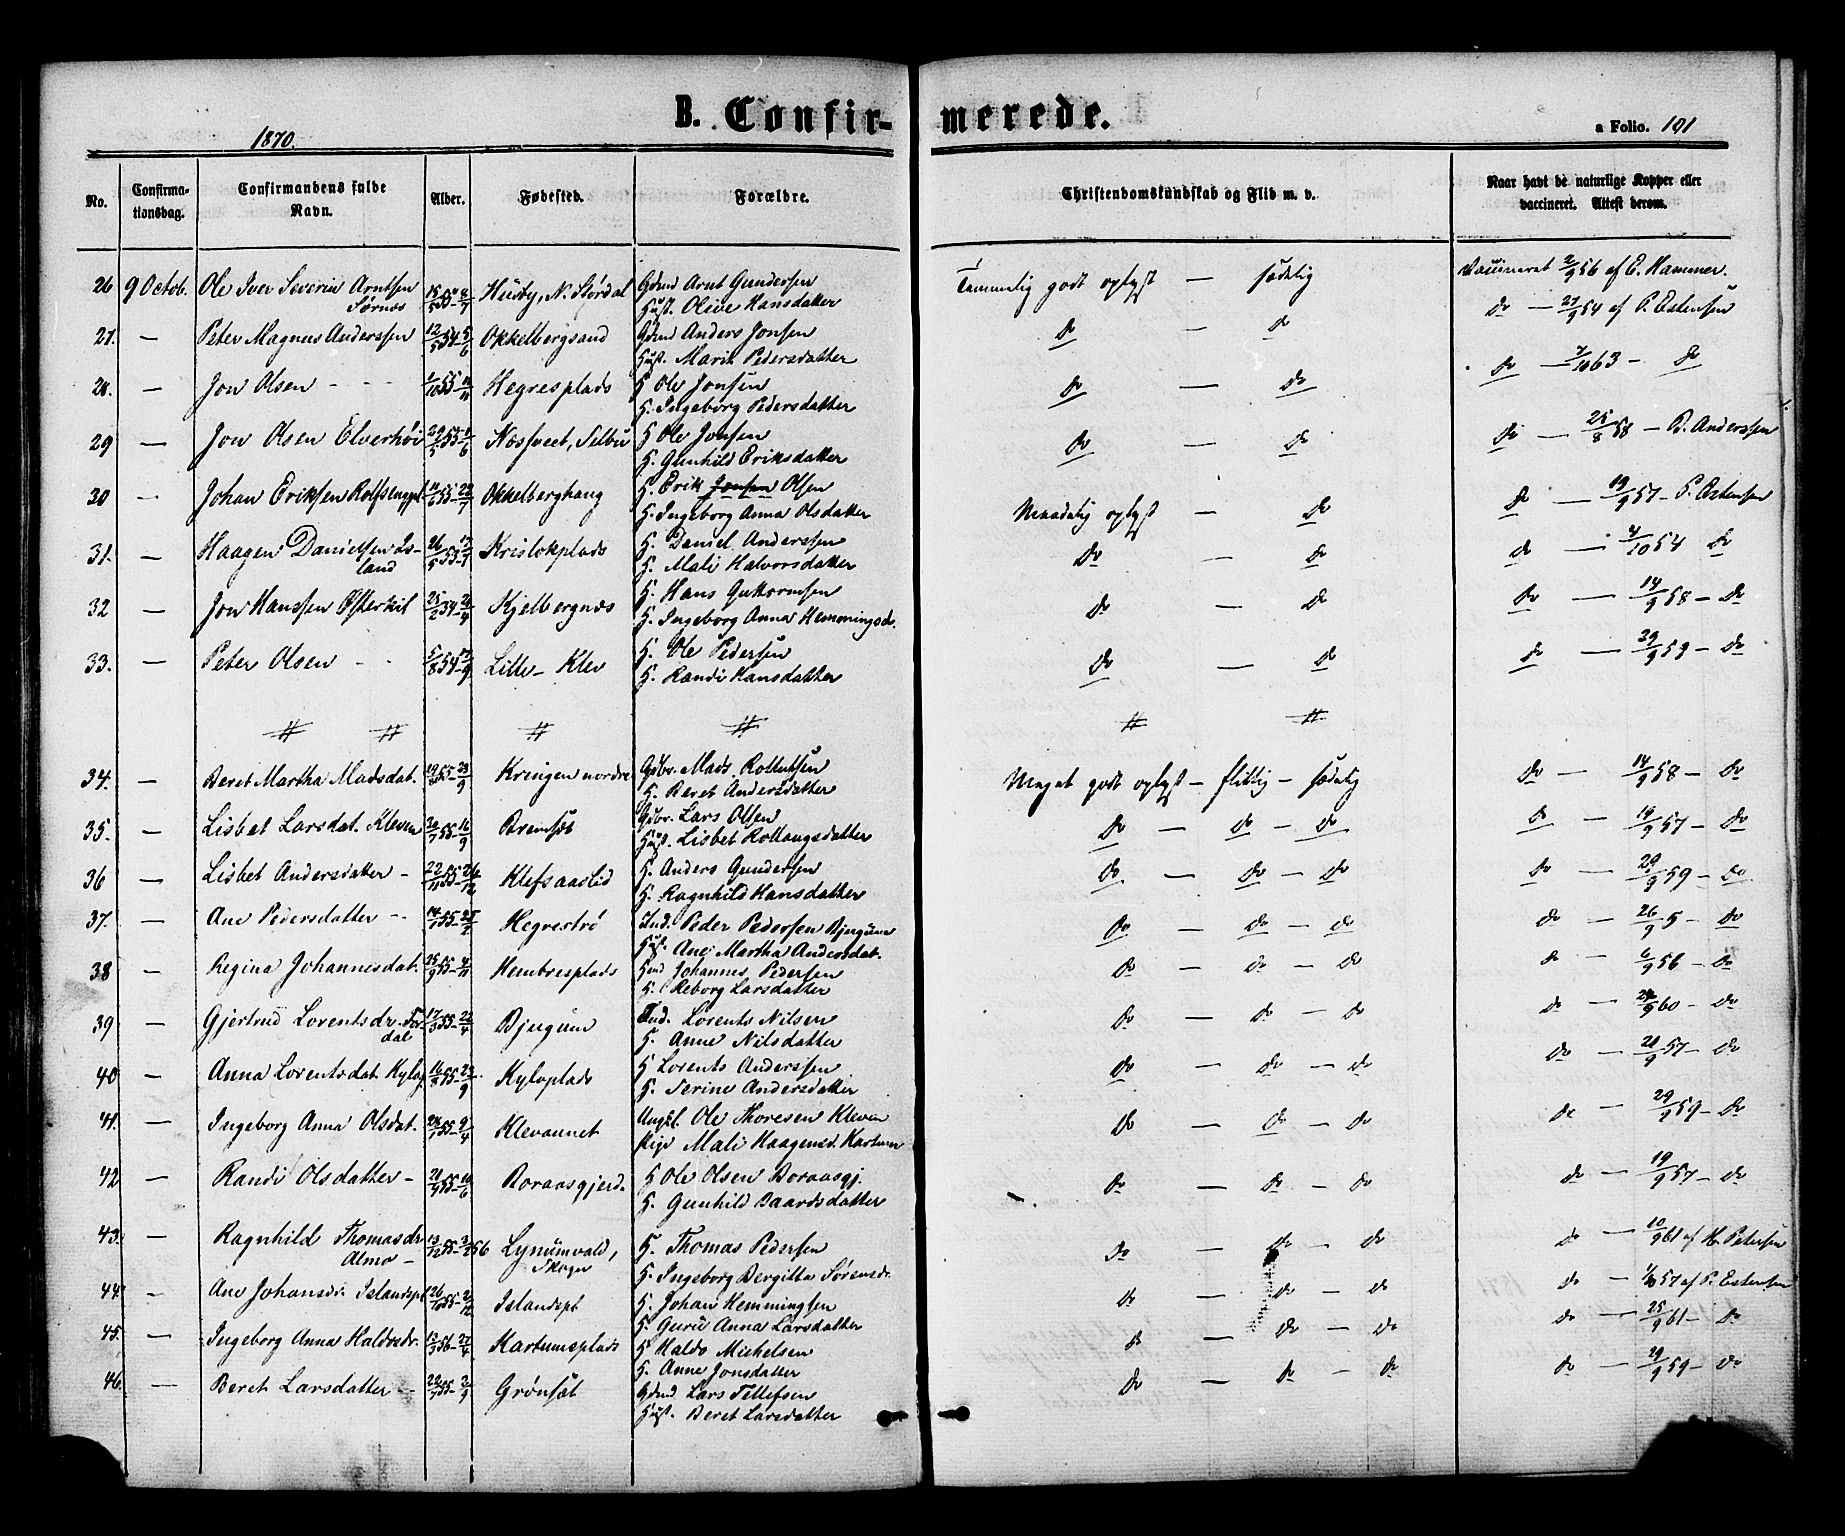 B. Confir-
merede.
1870.
a Folio. 101
No.
Confirma-
tionsdag.
Confirmandens fulde
Navn.
Alder.
Fødested.
Forældre.
Christendomskundskab og Flid m. v.
Naar havt de naturlige Kopper eller
vaccineret. Attest derom.
26 9 Octob. Ole Iver Severin Arntsen Husby, N. Stördal Gdmd Arnt Gundersen Temmelig godt oplyst — sædelig Vaccineret 2/9 56 af E. Hammer.
Sørnos Hust. Olive Hansdatter
27. — Peter Magnus Anderssen 12/5 54 5/6 Okkelbergsand Gdmd Anders Jonsen do — do do — 27/9 54 af P. Estensen
Hust. Marit Pedersdatter
28. — Jon Olsen Hegresplads H Ole Jonsen do — do do — 7/10 63 — do
H. Ingeborg Pedersdatter
29 — Jon Olsen Elverhöi Næsveet, Selbu H Ole Jonsen do — do do — 25/8 58 — B. Anderssen
H. Gunhild Eriksdatter
30 — Johan Eriksen Okkelberghaug H. Erik Jonsen Olsen Maadelig oplyst — do do — 19/9 57 — P. Estensen
H. Ingeborg Anna Olsdatter
31. — Haagen Danielsen Is- Krislokplads H. Daniel Anderssen do — do do — 4/10 54 do
land H. Mali Halvorsdatter
32 — Jon Hanssen Østerkil 25/2 54 Kjelbergnæs H. Hans Guttormsen do — do do — 14/9 58 — do
H. Ingeborg Anna Hemmingsd.
33. — Peter Olsen 5/8 54 Lille-Klev H. Ole Pedersen do — do do — 29/9 59 — do
H. Randi Hansdatter
# # # # # #
34. — Beret Martha Madsdat. Kringen nordre Gdbr. Mads Meget godt oplyst — flittig — sædelig do — 14/9 58 — do
H. Beret Andersdatter
35. — Lisbet Larsdat. Kleven Bremsæt Gdbr. Lars Olsen do — do — do do — 19/9 57 — do
Hust. Lisbet Rollaugsdatter
36 — Lisbet Andersdatter — 22/11 55 Klefsaaslid H. Anders Gundersen do — do — do do — 29/9 59 — do
H. Ragnhild Hansdatter
37. — Ane Pedersdatter Hegrestrø Ind. Peder Pedersen Bjugum do — do — do do — 26/9 5 — do
Hust. Ane Martha Andersdat.
38 — Regina Johannesdat. 25/9 55 Hembresplads Johannes Pedersen do — do — do do — 6/9 56 — do
H. Reborg Larsdatter
39 — Gjertrud Lorentsdr. For- 17/3 55 22/4 Bjugum Ind. Lorents Nilsen do — do — do do — 60 — do
dal H. Anne Nilsdatter
40 — Anna Lorentsdat. 16/8 55 Kyloplads H Lorents Anderssen do — do — do do — 57 — do
H. Serine Andersdatter
41. — Ingeborg Anna Olsdat. Klevaunet Ungkl. Ole Thoresen Kleven do — do — do do — 29/9 59 — do
Pige Mali Haagensd. Kartum
42 — Randi Olsdatter — Boraasgjerd. H Ole Olsen Boraasgj. do — do — do do — 19/9 57 — do
H. Gunhild Baardsdatter
43. — Ragnhild Thomasdr. 13/12 55 56 Lynumvald, H. Thomas Pedersen do — do — do do — 10/9 61 af H. Petersen
Almo — Skogn H. Ingeborg Bergitta Sørensdr.
44. — Ane Johansdr. Islandspl 26/10 55 2/12 Islandspl H. Johan Hemmingsen do — do — do do — 57 af P. Estensen
H. Guru Anna Larsdatter
45. — Ingeborg Anna Haldosdr. 13/3 56 Kartumsplads H Haldo Michelsen do — do — do do — 25/9 61 — do
H. Anne Jonsdatter
46. — Beret Larsdatter Grönsæt Gdmd Lars Tellefsen do — do — do do — 29/9 59 — do
Hust. Beret Larsdatter